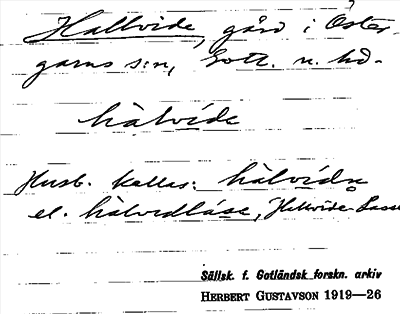 Hallvide, gård i Öster-
garns s:n, Gotl. n. hd.
hàlvíde
Husb. kallas: hàlvídn
el. hàlvidlása, Hallvide-Lasse
Sällsk. f. Gotländsk forskn. arkiv
HERBERT GUSTAVSON 1919—26